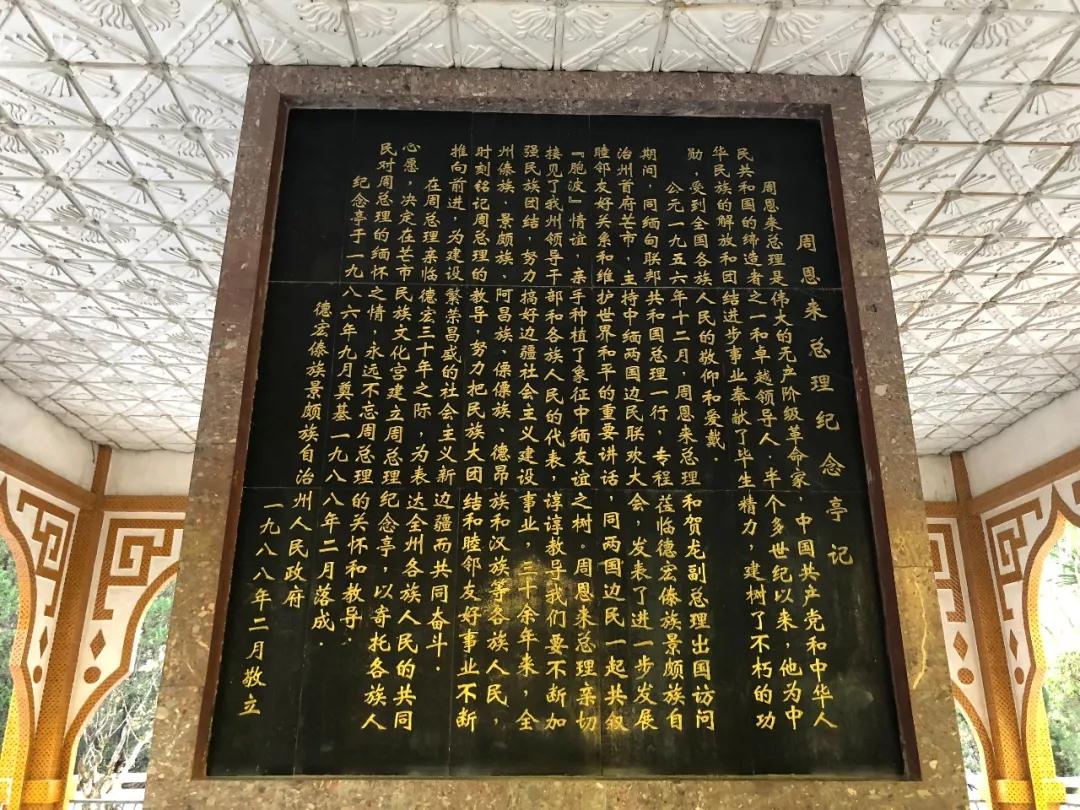 周恩来总理纪念亭记
周恩来总理是伟大的无产阶级革命家,中国共产党和中华人
民共和国的缔造者之一和卓越领导人.半个多世纪以来,他为中
华民族的解放和团结进步事业奉献了毕生精力,建树了不朽的功
勋,受到全国各族人民的敬仰和爱戴.
公元一九五六年十二月,周恩来总理和贺龙副总理出国访问
期间,同缅甸联邦共和国总理一行,专程莅临德宏傣族景颇族自
治州首府芒市,主持中缅两国边民联欢大会,发表了进一步发展
睦邻友好关系和维护世界和平的重要讲话,同两国边民一起共叙
『胞波』情谊,亲手种植了象征中缅友谊之树.周恩来总理亲切
接见了我州领导干部和各族人民的代表,谆谆教导我们要不断加
强民族团结,努力搞好边疆社会主义建设事业.三十余年来,全
州傣族、景颇族、阿昌族、傈僳族、德昂族和汉族等各族人民,
时刻铭记周总理的教导,努力把民族大团结和睦邻友好事业不断
推向前进,为建设繁荣昌盛的社会主义新边疆而共同奋斗.
在周总理亲临德宏三十年之际,为表达全州各族人民的共同
心愿,决定在芒市民族文化宫建立周总理纪念亭,以寄托各族人
民对周总理的缅怀之情,永远不忘周总理的关怀和教导.
纪念亭于一九八六年九月奠基一九八八年二月落成.
德宏傣族景颇族自治州人民政府
一九八八年二月敬立